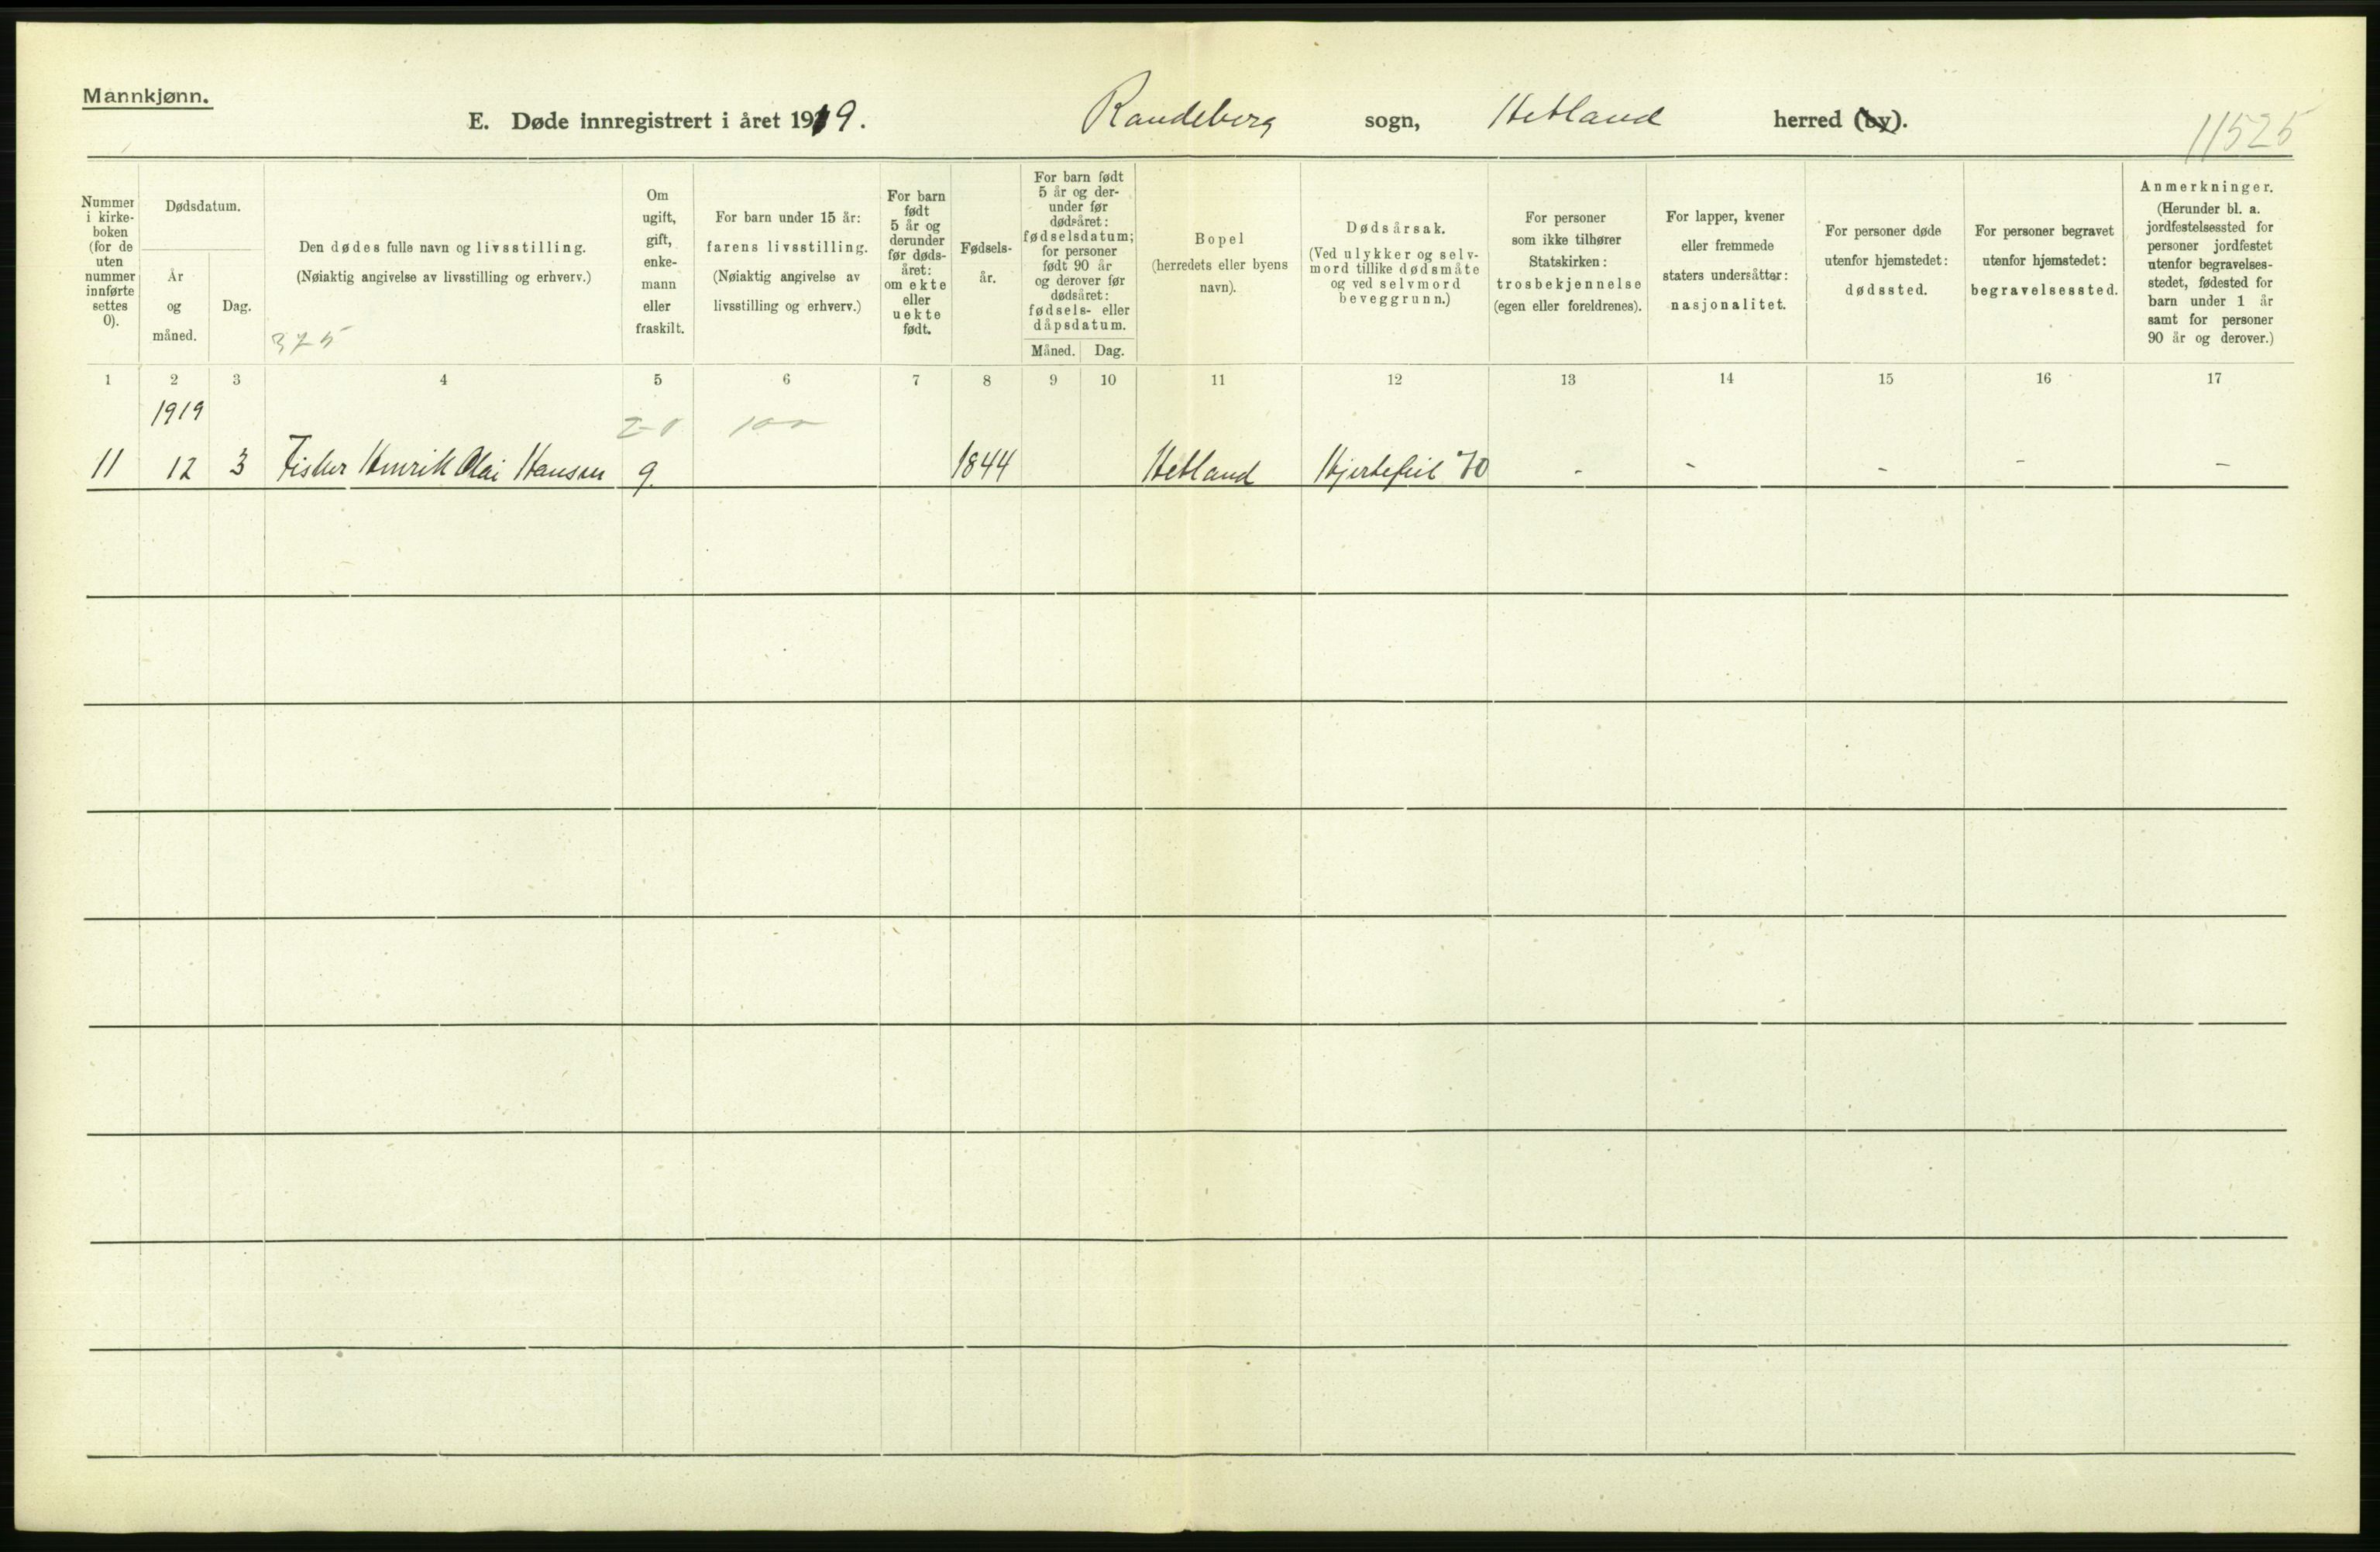 Mannkjønn.
E. Døde innregistrert i året 1919. Randeberg sogn, Hetland herred (by).
11525
Nummer i kirke-boken (for de uten nummer innførte settes 0).
Dødsdatum.
År og måned.
Dag.
Den dødes fulle navn og livsstilling.
(Nøiaktig angivelse av livsstilling og erhverv.)
375
Om ugift, gift, enke-mann eller fraskilt.
For barn under 15 år:
farens livsstilling.
(Nøiaktig angivelse av
livsstilling og erhverv.)
For barn født 5 år og derunder før døds-året: om ekte eller uekte født.
Fødsels-år.
For barn født 5 år og der-under før dødsåret: fødselsdatum; for personer født 90 år og derover før dødsåret: fødsels- eller dåpsdatum.
Måned. Dag.
Bopel
(herredets eller byens
navn).
Dødsårsak.
(Ved ulykker og selv-
mord tillike dødsmåte
og ved selvmord
beveggrunn.)
For personer
som ikke tilhører
Statskirken:
trosbekjennelse
(egen eller foreldrenes).
For lapper, kvener
eller fremmede
staters undersåtter:
nasjonalitet.
For personer døde
utenfor hjemstedet:
dødssted.
For personer begravet
utenfor hjemstedet:
begravelsessted.
Anmerkninger.
(Herunder bl. a.
jordfestelsessted for
personer jordfestet
utenfor begravelses-
stedet, fødested for
barn under 1 år
samt for personer
90 år og derover.)
1 2 3 4 5 6 7 8 9 10 11 12 13 14 15 16 17
1919
100
11 12 3 Fisker Henrik Olai Hansen g. 1844 Hetland Hjertefeil 70 - - - - -